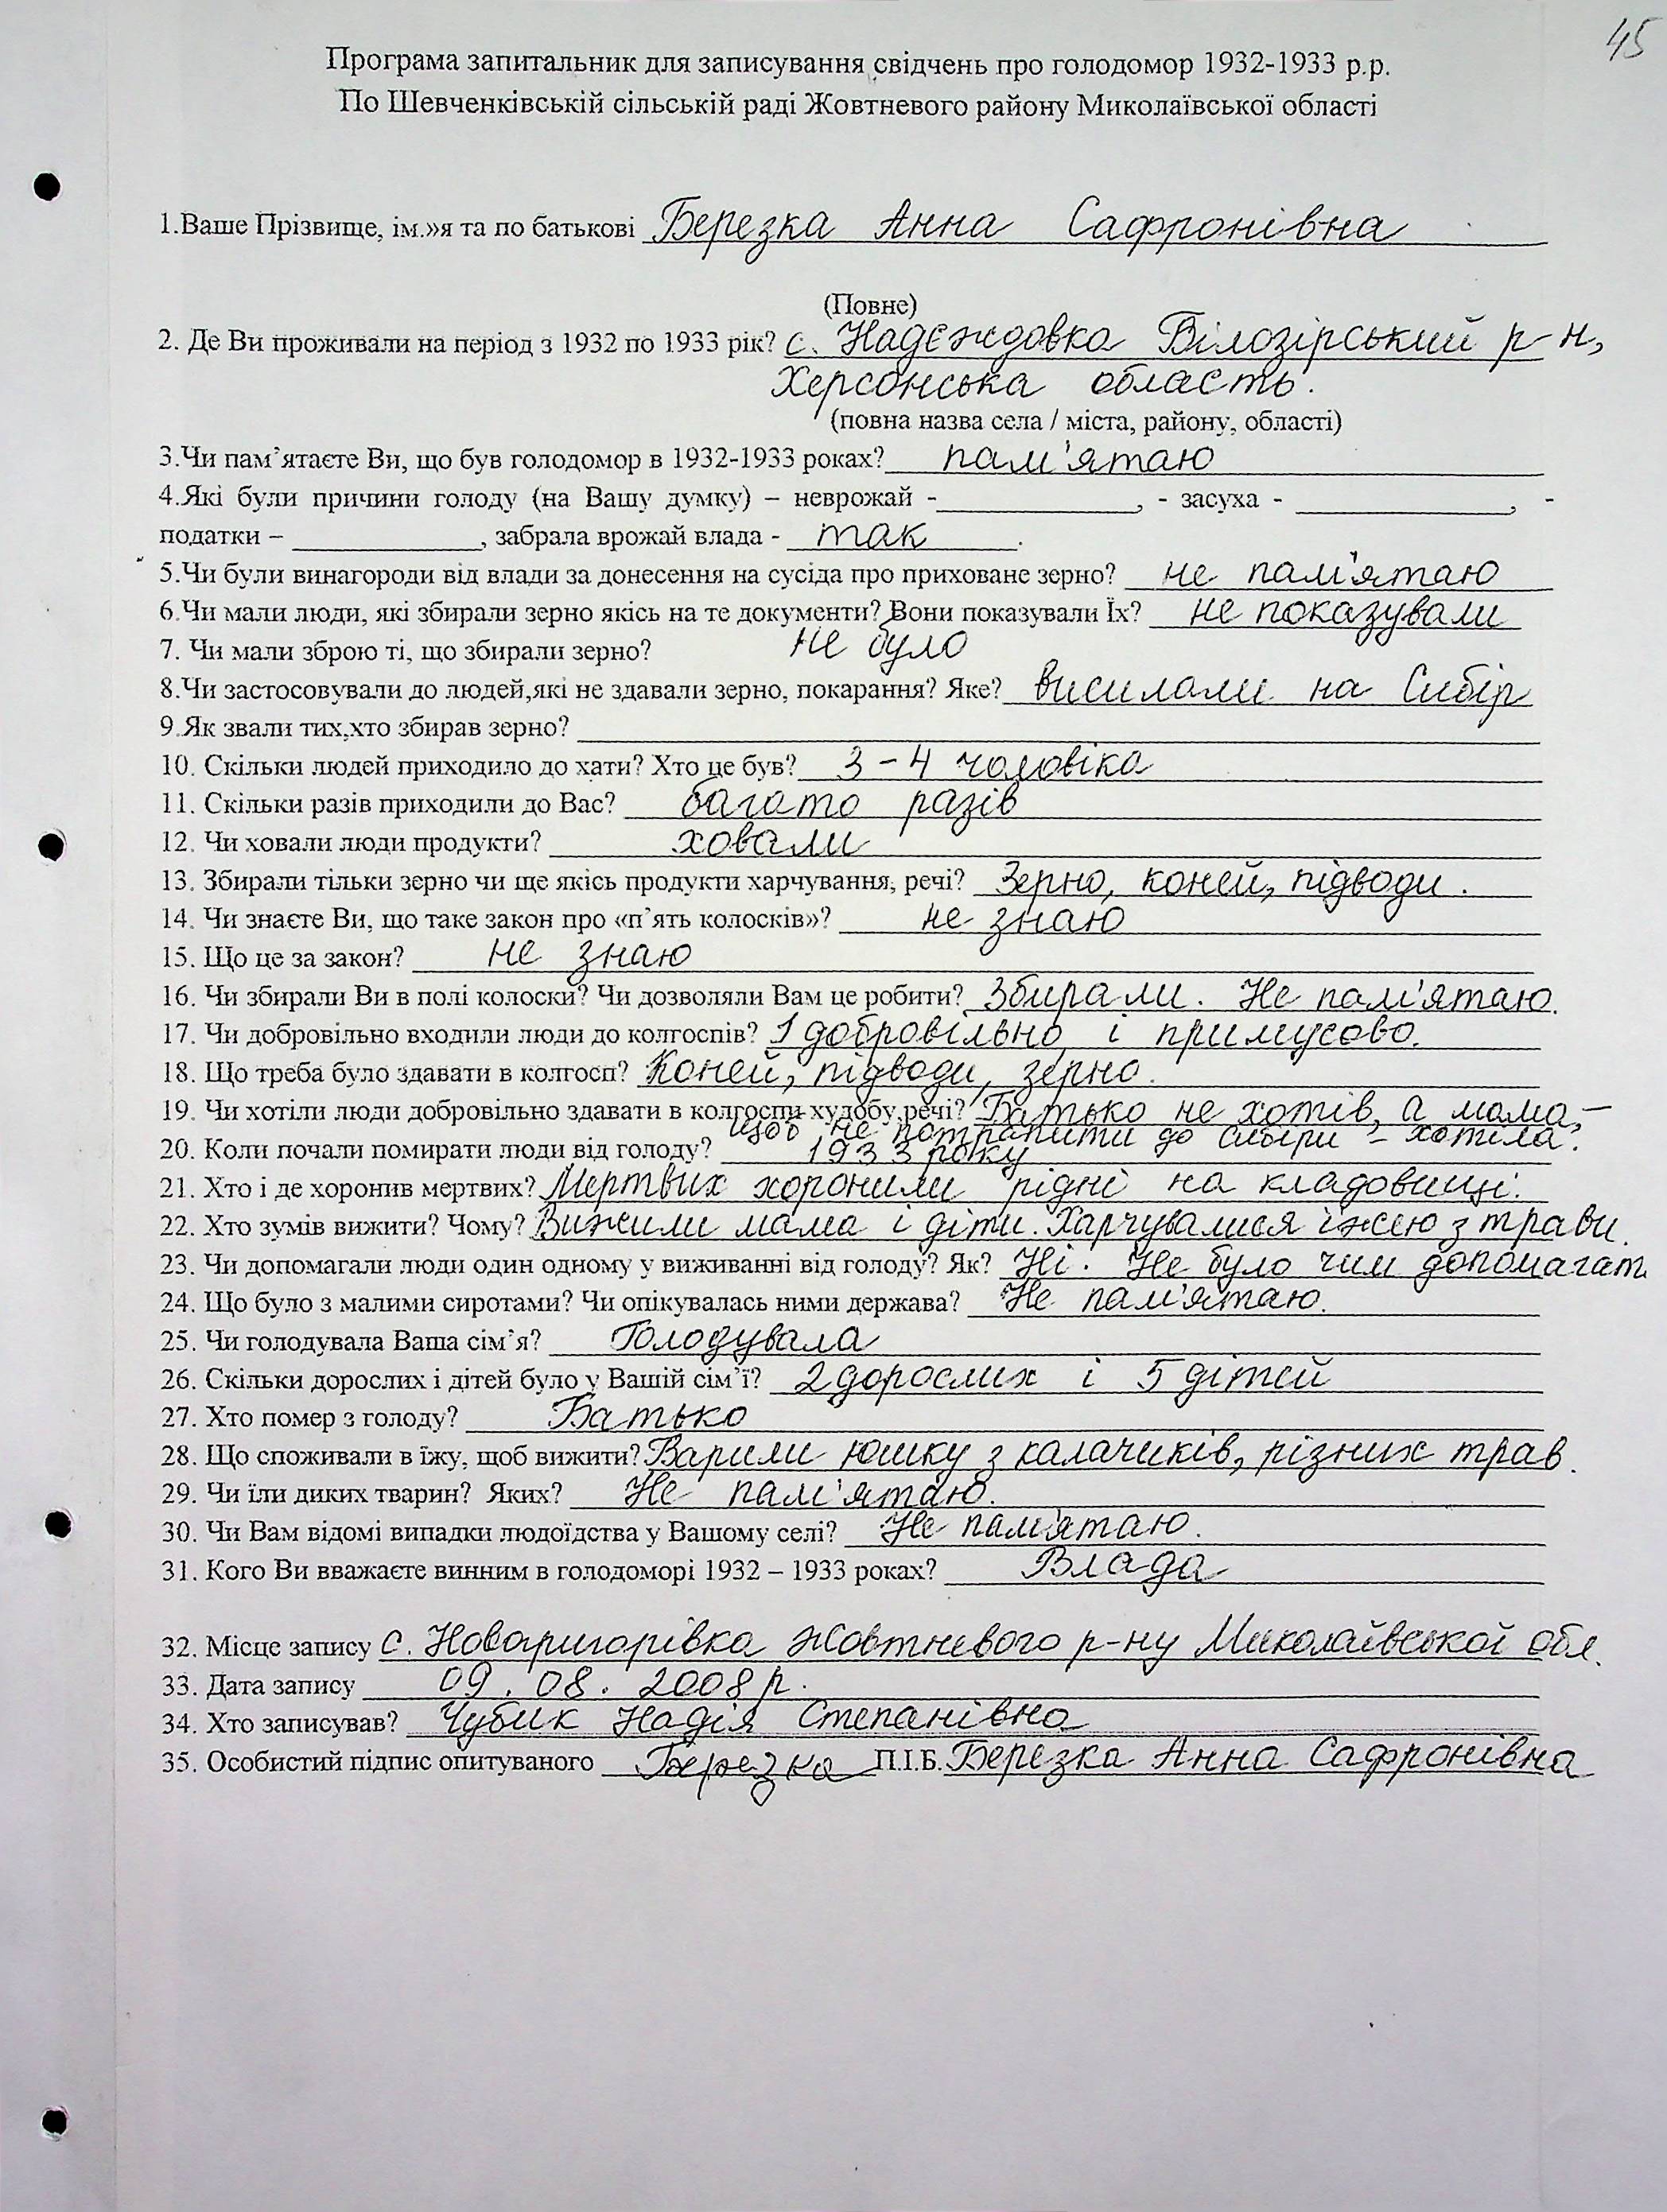 45
Програма запитальник для записування свідчень про голодомор 1932-1933 р.р.
По Шевченківській сільській раді Жовтневого району Миколаївської області
1.Ваше Прізвище, ім.»я та по батькові Березка Анна Сафронівна
(Повне)
2. Де Ви проживали на період з 1932 по 1933 рік? с. Надєждовка Білозірський р-н,
Херсонська область.
(повна назва села / міста, району, області)
3.Чи пам’ятаєте Ви, що був голодомор в 1932-1933 роках? пам'ятаю
4.Які були причини голоду (на Вашу думку) – неврожай - ____________, - засуха - ____________, -
податки – ____________, забрала врожай влада - так.
5.Чи були винагороди від влади за донесення на сусіда про приховане зерно? не пам'ятаю
6.Чи мали люди, які збирали зерно якісь на те документи? Вони показували Їх? не показували
7. Чи мали зброю ті, що збирали зерно? не було
8.Чи застосовували до людей,які не здавали зерно, покарання? Яке? висилали на Сибір
9.Як звали тих,хто збирав зерно?
10. Скільки людей приходило до хати? Хто це був? 3-4 чоловіка
11. Скільки разів приходили до Вас? багато разів
12. Чи ховали люди продукти? ховали
13. Збирали тільки зерно чи ще якісь продукти харчування, речі? Зерно, коней, підводи.
14. Чи знаєте Ви, що таке закон про «п’ять колосків»? не знаю
15. Що це за закон? не знаю
16. Чи збирали Ви в полі колоски? Чи дозволяли Вам це робити? Збирали. Не пам'ятаю.
17. Чи добровільно входили люди до колгоспів? І добровільно і примусово.
18. Що треба було здавати в колгосп? Коней, підводи, зерно.
19. Чи хотіли люди добровільно здавати в колгоспи худобу,речі? Батько не хотів, а мама,-
щоб не потрапити до Сибіри - хотіла.
20. Коли почали помирати люди від голоду? 1933 року
21. Хто і де хоронив мертвих? Мертвих хоронили рідні на кладовищі.
22. Хто зумів вижити? Чому? Вижили мама і діти. Харчувалися їжею з трави.
23. Чи допомагали люди один одному у виживанні від голоду? Як? Ні. Не було чим допомагат
24. Що було з малими сиротами? Чи опікувалась ними держава? Не пам'ятаю.
25. Чи голодувала Ваша сім’я? Голодувала
26. Скільки дорослих і дітей було у Вашій сім’ї? 2 дорослих і 5 дітей
27. Хто помер з голоду? Батько
28. Що споживали в їжу, щоб вижити? Варили юшку з калачиків, різних трав.
29. Чи їли диких тварин? Яких? Не пам'ятаю.
30. Чи Вам відомі випадки людоїдства у Вашому селі? Не пам'ятаю.
31. Кого Ви вважаєте винним в голодоморі 1932 – 1933 роках? Влада
32. Місце запису с. Новогригорівка Жовтневого р-ну Миколаївської обл.
33. Дата запису 09.08.2008р.
34. Хто записував? Чубик Надія Степанівна
35. Особистий підпис опитуваного Березка П.І.Б. Березка Анна Сафронівна